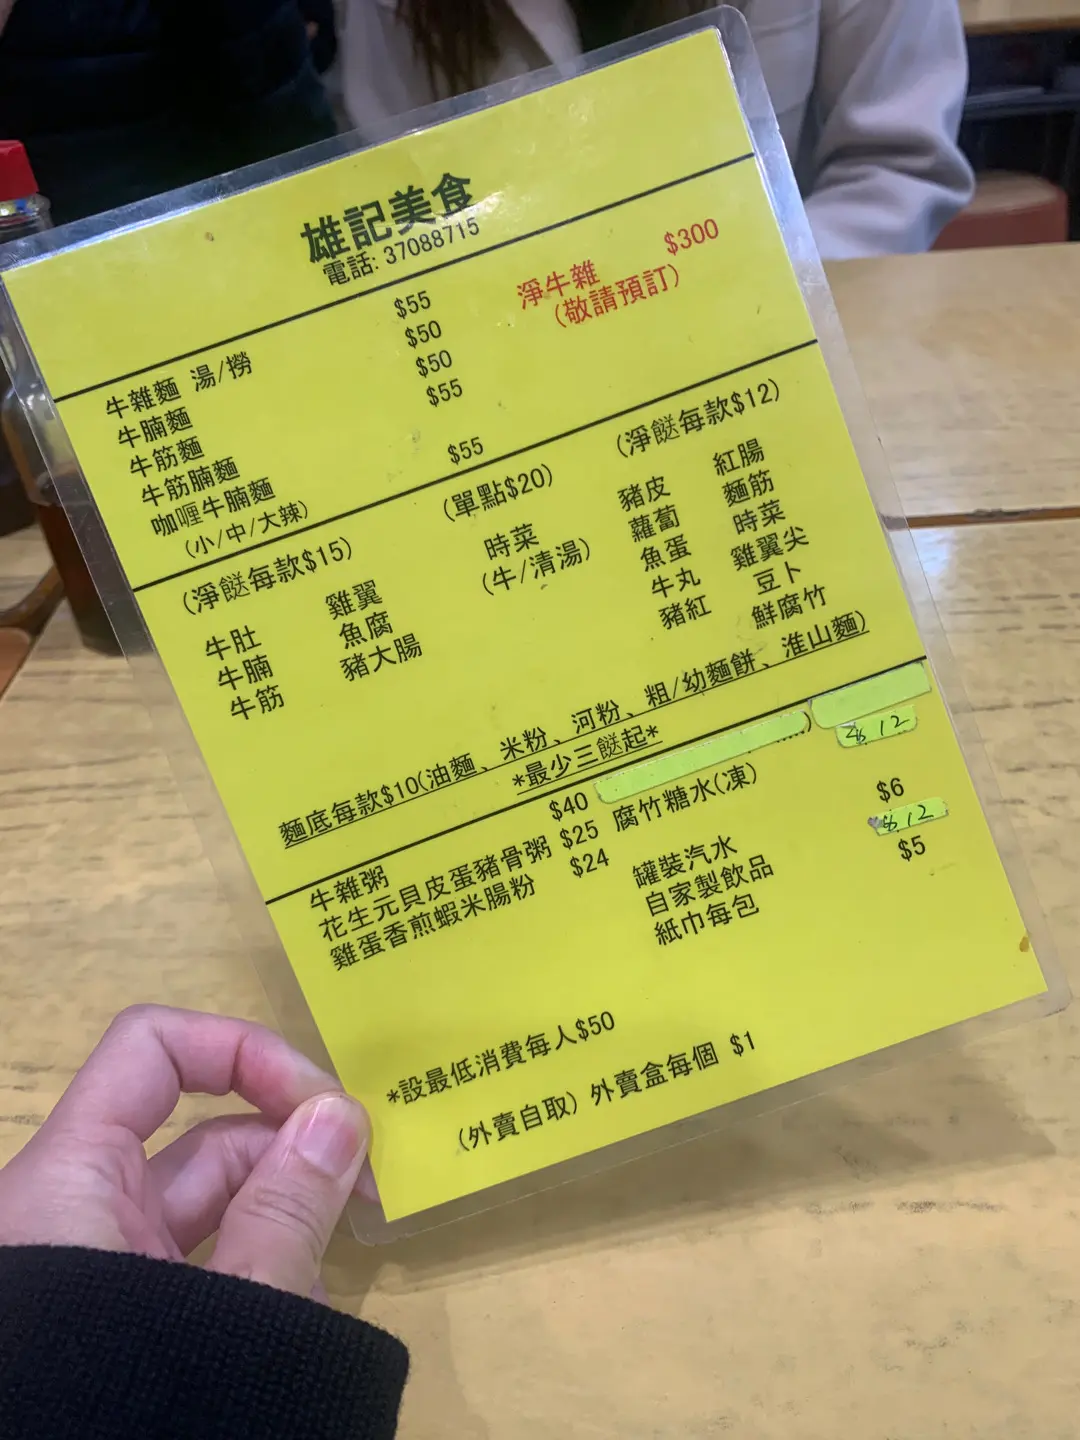 雄記美食
電話: 37088715
牛雜麵 湯/撈 $55
牛腩麵 $50
牛筋麵 $50
牛筋腩麵 $55
咖喱牛腩麵 $55
(小/中/大辣)
淨牛雜 $300
(敬請預訂)
(淨餸每款$15)
牛肚 雞翼
牛腩 魚腐
牛筋 豬大腸
(單點$20)
時菜
(牛/清湯)
(淨餸每款$12)
豬皮 紅腸
蘿蔔 麵筋
魚蛋 時菜
牛丸 雞翼尖
豬紅 豆卜
鮮腐竹
麵底每款$10(油麵、米粉、河粉、粗/幼麵餅、淮山麵)
*最少三餸起*
牛雜粥 $40
花生元貝皮蛋豬骨粥 $25
雞蛋香煎蝦米腸粉 $24
)
腐竹糖水(凍) $12
罐裝汽水 $6
自家製飲品 $12
紙巾每包 $5
*設最低消費每人$50
(外賣自取) 外賣盒每個 $1